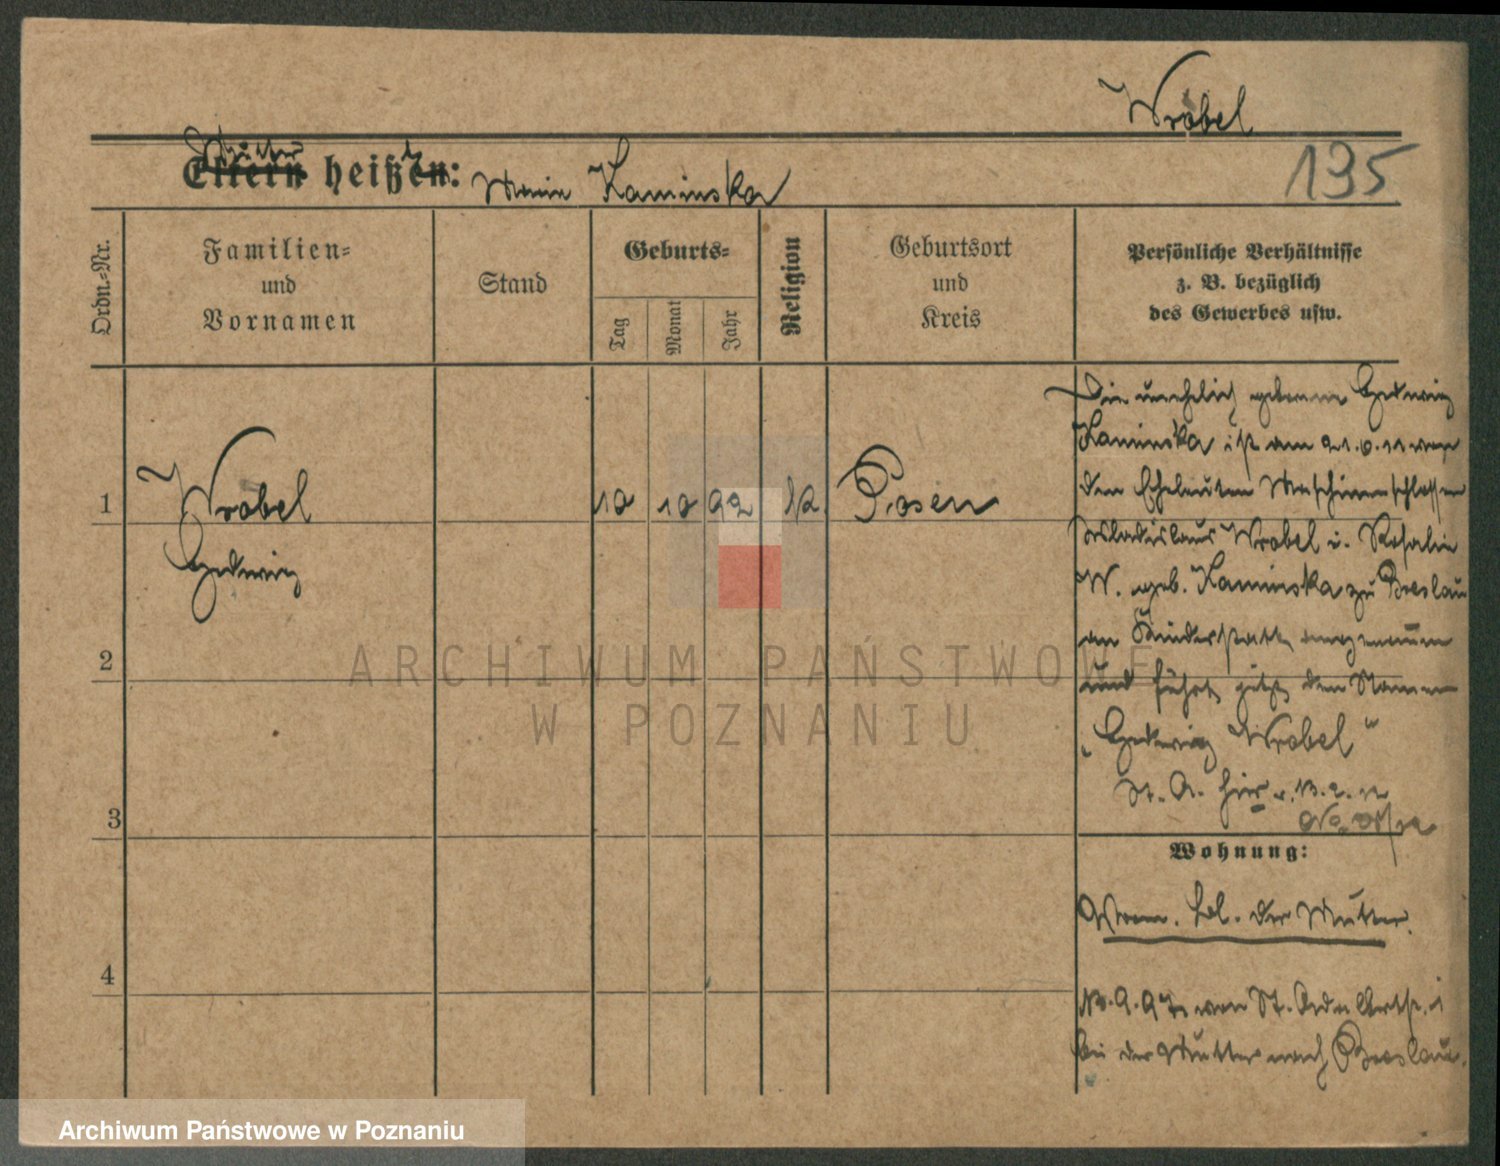 Wrobel
135
Mutter
Eltern heißen: Marie Kaminska
Ordn.-Nr.
Familien-
und
Vornamen
Stand
Geburts-
Tag
Monat
Jahr
Religion
Geburtsort
und
Kreis
Persönliche Verhältnisse
z. B. bezüglich
des Gewerbes usw.
1
Wrobel
Hedwig
10 10 92 k. Posen
2
3
4
Die unehelich geborene Hedwig
Kaminska ist am von
den Eheleuten Maschinenschlosser
Wladislaus Wrobel u. Rosalie
W. geb. Kaminska zu Breslau
an Kindesstatt angenommen
und führt jetzt den Namen
„Hedwig Wrobel"
St. A. hier v.
Wohnung:
bei der Mutter.
von St.
bei der Mutter nach Breslau.
ARCHIWUM PAŃSTWOWE
W POZNANIU
Archiwum Państwowe w Poznaniu